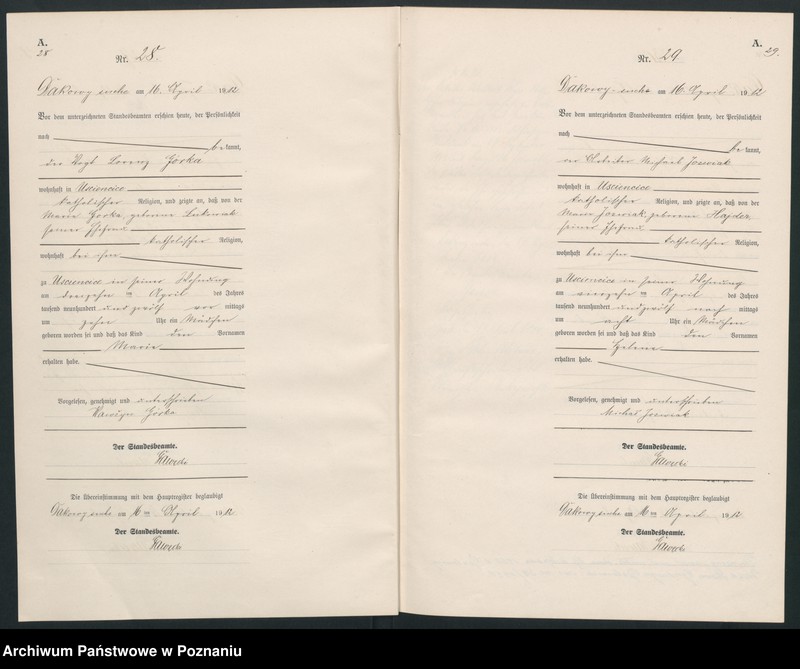 A.
28
Nr. 28.
Dakowy suche am 16. April 1912
Vor dem unterzeichneten Standesbeamten erschien heute, der Persönlichkeit
nach
bekannt,
der Vogt Lorenz Górka
wohnhaft in Usciencice
katholischer Religion, und zeigte an, daß von der
Marie Gorka geborene
seiner Ehefrau
katholischer Religion,
wohnhaft bei ihm
zu Usciencice in seiner Wohnung
am dreizehn ten April des Jahres
tausend neunhundert und zwölf vor mittags
um zehn Uhr ein Mädchen
geboren worden sei und daß das Kind den Vornamen
Marie
erhalten habe.
Vorgelesen, genehmigt und unterschrieben
Górka
Der Standesbeamte.
Die Übereinstimmung mit dem Hauptregister beglaubigt
Dakowy suche am 16 ten April 1912
Der Standesbeamte.
A.
29.
Nr. 29
Dakowy suche am 16 April 1912
Vor dem unterzeichneten Standesbeamten erschien heute, der Persönlichkeit
nach
bekannt,
der Arbeiter Michael
wohnhaft in Usciencice
katholischer Religion, und zeigte an, daß von der
Marie geborene Hajdez
seiner Ehefrau
katholischer Religion,
wohnhaft bei ihm
zu Usciencice in seiner Wohnung
am vierzehn ten April des Jahres
tausend neunhundert und zwölf nach mittags
um acht Uhr ein Mädchen
geboren worden sei und daß das Kind den Vornamen
Helene
erhalten habe.
Vorgelesen, genehmigt und unterschrieben
Michał
Der Standesbeamte.
Die Übereinstimmung mit dem Hauptregister beglaubigt
Dakowy suche am 16 ten April 1912
Der Standesbeamte.
Archiwum Państwowe w Poznaniu